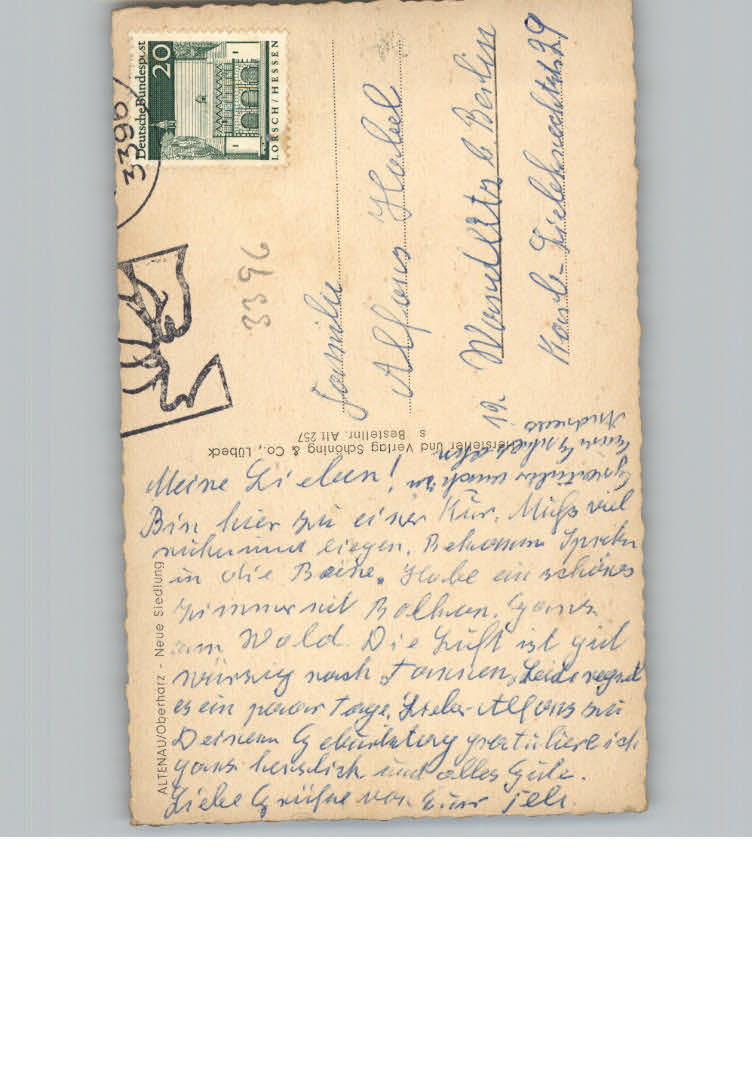 Deutsche Bundespost
20
LORSCH / HESSEN
3396
3396
Familie
Alfons Habel
19. Wandlitz b Berlin
Karl-Liebknechtstr. 29
Hersteller und Verlag Schöning & Co., Lübeck
s Bestellnr. Alt 257
ALTENAU/Oberharz - Neue Siedlung
Meine Lieben!
Bin hier zu einer Kur. Muß viel
ruhn und liegen. Bekomme Spritzen
in die Beine. Habe ein schönes
Zimmer mit Balkon. Ganz
am Wald. Die Luft ist gut
würzig nach Tannen. Leider regnet
es ein paar Tage. Lieber Alfons zu
Deinem Geburtstag gratuliere ich
ganz herzlich und alles Gute.
Liebe Grüße von Eurer
Gratuliere auch zu
Eurem Enkelchen
Andreas